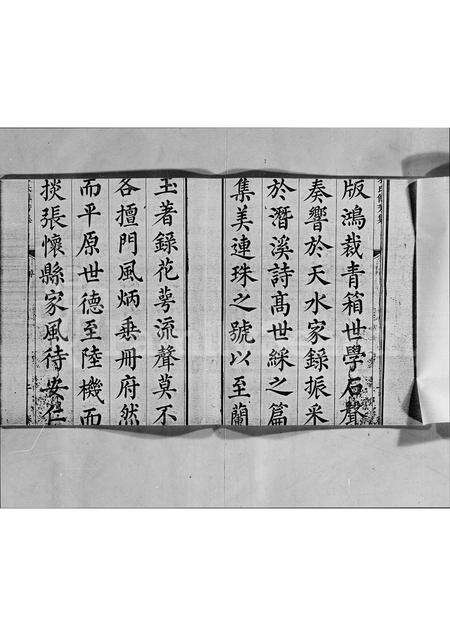 版鴻裁青箱世學石聲
奏響於天水家錄振采
於潛溪詩髙世綵之篇
集美連珠之號以至蘭
玉著錄花萼流聲莫不
各擅門風炳乗冊府然
而平原世德至陸機而
掞張懷縣家風待安仁